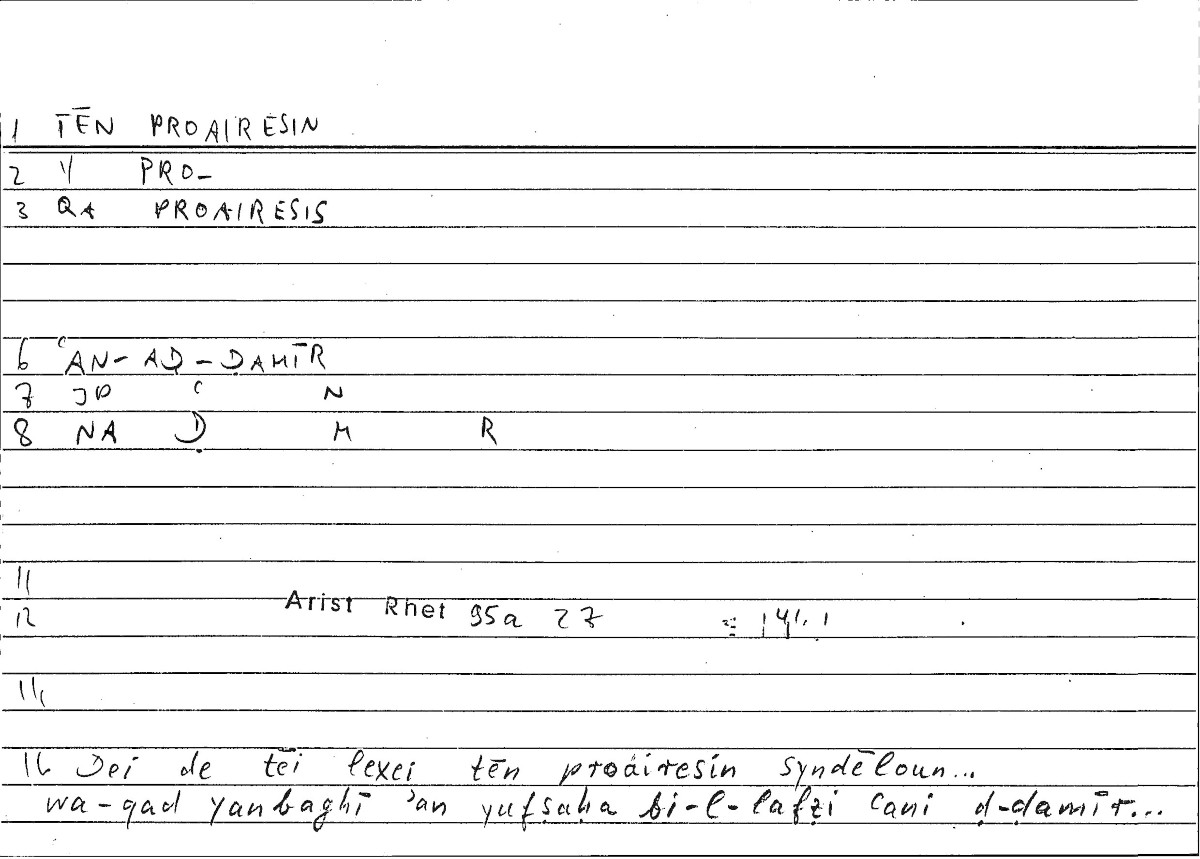 1 TĒN PROAIRESIN
2 Y PRO-
3 QA PROAIRESIS
6 ʿAN-AḌ-ḌAMĪR
7 JP ʿ N
8 NA Ḍ M R
11
12 Arist Rhet 95a 27 = 141,1
14
16 Dei de tēi lexei tēn proairesin syndēloun...
wa-qad yanbaghī ʾan yufṣaḥa bi-l-lafẓi ʿani ḍ-ḍamīr...